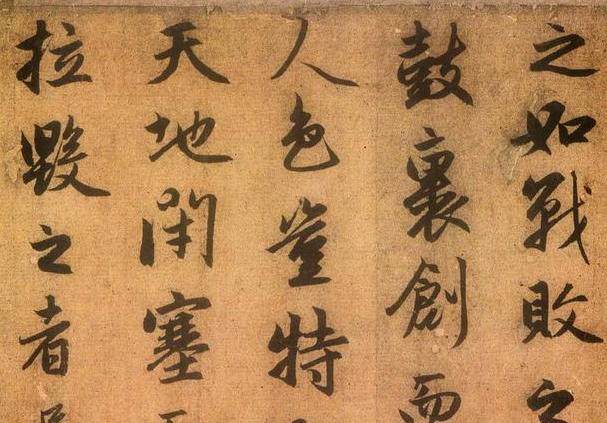 之如戰敗之
鼓裹創而
人色豈特
天地閉塞
拉毀之者